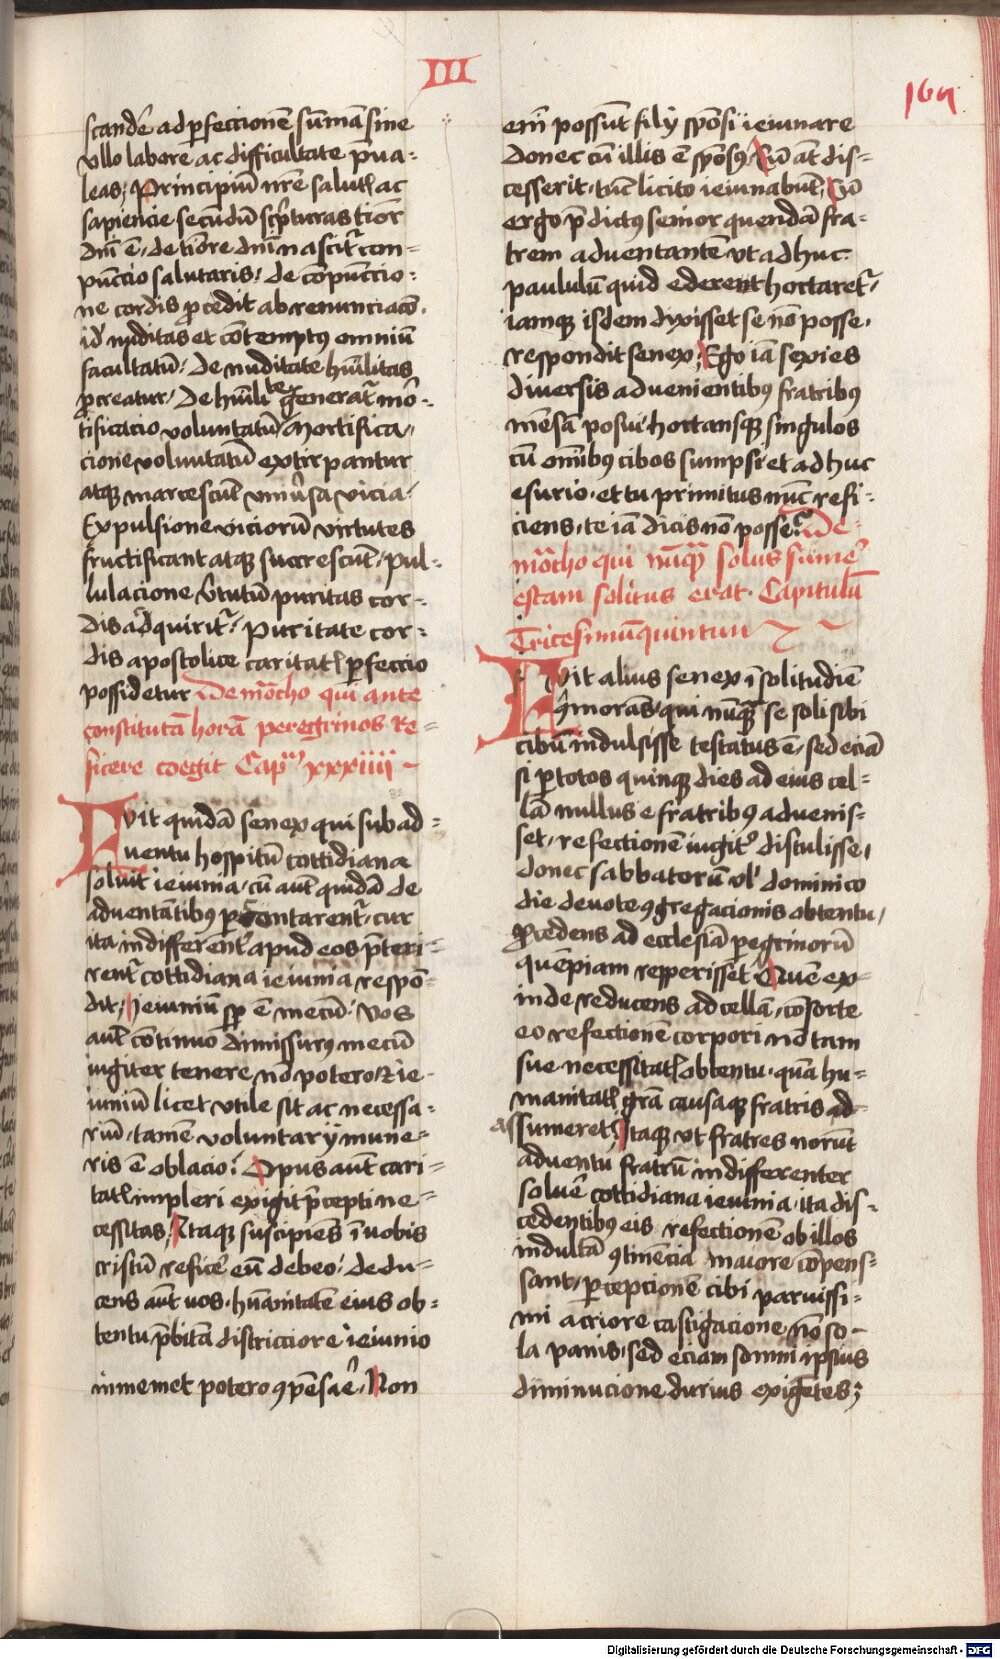 III
164
scandē ad ꝑfeccionē sūmā sine
vllo labore ac difficultate p̄ua-
leas; Principiū nr̄e salutꝭ ac
sapiencie secūdū scpͥturas timor
dn̄i ē, de timore dn̄i nascitͬ con-
punccio salutaris, de cōpunccio-
ne cordis ꝓcedit abrenunciacō,
id nuditas et cōtemptꝰ omniū
facultatū, De nuditate hūilitas
ꝓcreatur, De hūilite generatͬ mor-
tificacio voluntatū, Mortifica,
cione voluntatū extirpantur
atqꝫ marcescūt vniūsa vicia,
Expulsione viciorū virtutes
fructificant atqꝫ succrescūt, Pul-
lulacione v̄tutū puritas cor-
dis adquiritͬ, Puritate cor-
dis apostolice caritatꝭ ꝑfeccio
possidetur De mōcho qui ante
constitutā horā peregrinos Re-
ficere coegit Capm xxxiiii
Fuit quidā senex qui sub ad-
uentu hospitū cottidiana
soluit ieiunia, cū aūt quidā de
aduentātibꝰ ꝑcontarentͬ, cur
ita indifferent̄ apud eos p̄teri-
rentͬ cottidiana ieiunia respō-
dit, ieiuniū sꝑ ē mecū, Vos
aūt cōtinuo dimissurꝰ mecū
iugiter tenere nō potero, Et ie-
iuniū licet vtile sit ac necessa-
riū, tamē voluntarij mune-
ris ē oblacio, Opus aūt cari-
tatꝭ impleri exigit p̄cepti ne-
cessitas, Itaqꝫ suscipiēs ī uobis
cristū reficē eū debeo, dedu-
cens aūt uos, hūanitatē eius ob-
tentu p̄bitā districciore ieiunio
in memet potero ꝯpēsare, Non
em̄ possūt filij spōsi ieiunare
donec cū illis ē spōsꝰ, Cū aūt dis-
cesserit, tūc licito ieiunabūt, Cū
ergo p̄dictus senior quendā fra-
trem aduentantē vt adhuc
paululū quid ederent hortaretͬ,
iamqꝫ isdem dixisset se nō posse,
respondit senex, Ego iā sexies
diuersis aduenientibꝰ fratribꝰ
mēsā posui, hortansqꝫ singulos
cū omībꝰ cibos sumpsi et adhuc
esurio, et tu primitus nūc refi-
ciens, te iā dicis nō posse, De
mōcho qui nūqͣ solus sumē
escam solitus erat. Capitulū
Tricesimūquintum
Fuit alius senex ī solitudiē
ꝯmorās, qui nūqͣ se soli sibi
cibū indulsisse testatus ē, sed eciā
si ꝑ totos quinqꝫ dies ad eius cel-
lā nullus e fratribꝰ aduenis-
set, refectionē iugitͬ distulisse,
donec sabbatorū vl̕ dominico
die deuote ꝯgregacionis obtentu,
ꝓcedens ad ecclesiā ꝑegrinorū
quēpiam repperisset Quē ex-
inde reducens ad cellā, cōsorte
eo refectionē corpori nō tam
sue necessitatꝭ obtentu, quā hu-
manitatꝭ grā causaqꝫ fratris ad
assumeret, Itaqꝫ vt fratres norūt
aduentu fratrū indifferenter
soluē cottidiana ieiunia, ita dis-
cedentibꝰ eis refectionē ob illos
indultā ꝯtinēcia maiore cōpens-
sant, ꝑcepcionē cibi paruissi-
mi acriore castigacione, nō so-
la panis, sed eciam somni ipsius
diminucione durius exigētes;
Digitalisierung gefördert durch die Deutsche Forschungsgemeinschaft - DFG